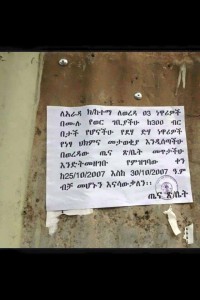 ለአራዳ ክ/ከተማ ለወረዳ 03 ነዋሪዎች
በሙሉ የወር ገቢያችሁ ከ300 ብር
በታች የሆናችሁ የደሃ ድሃ ነዋሪዎች
የነፃ ህክምና መታወቂያ እንዲሰጣችሁ
በወረዳው ጤና ጽ/ቤት መጥታችሁ
እንድትመዘገቡ የምዝገባው ቀን
ከ25/10/2007 እስከ 30/10/2007 ዓ.ም
ብቻ መሆኑን እናሳውቃለን፡፡
ጤና ጽ/ቤት